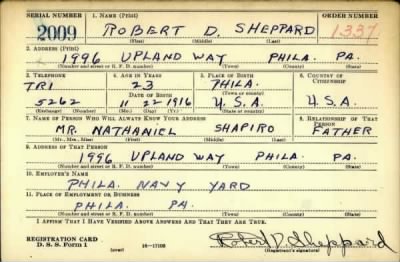 SERIAL NUMBER 1. NAME (Print) ORDER NUMBER
2009 ROBERT D. SHEPPARD 1337
(First) (Middle) (Last)
2. ADDRESS (Print)
1996 UPLAND WAY PHILA. PA.
(Number and street or R. F. D. number) (Town) (County) (State)
3. TELEPHONE 4. AGE IN YEARS 5. PLACE OF BIRTH 6. COUNTRY OF CITIZENSHIP
TRI 23 PHILA.
DATE OF BIRTH (Town or county)
5262 11 22 1916 U.S.A. U.S.A.
(Exchange) (Number) (Mo.) (Day) (Yr.) (State or country)
7. NAME OF PERSON WHO WILL ALWAYS KNOW YOUR ADDRESS 8. RELATIONSHIP OF THAT PERSON
MR. NATHANIEL SHAPIRO FATHER
(Mr., Mrs., Miss) (First) (Middle) (Last)
9. ADDRESS OF THAT PERSON
1996 UPLAND WAY PHILA. PA.
(Number and street or R. F. D. number) (Town) (County) (State)
10. EMPLOYER'S NAME
PHILA. NAVY YARD
11. PLACE OF EMPLOYMENT OR BUSINESS
PHILA. PA.
(Number and street or R. F. D. number) (Town) (County) (State)
I AFFIRM THAT I HAVE VERIFIED ABOVE ANSWERS AND THAT THEY ARE TRUE.
REGISTRATION CARD
D. S. S. Form 1 (over) 16—17105 Robert D. Sheppard
(Registrant's signature)